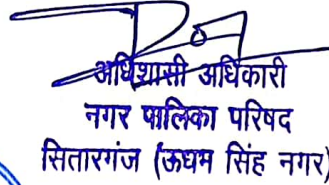 अधिशासी अधिकारी
नगर पालिका परिषद
सितारगंज (ऊधम सिंह नगर)